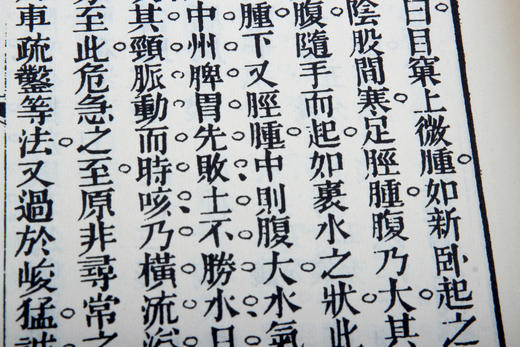 曰目窠上微腫如新卧起之
陰股間寒足脛腫腹乃大其
腹隨手而起如裹水之狀此
腫下又脛腫中則腹大水氣
中州脾胃先敗土不勝水日
其頸脈動而時咳乃橫流溢
至此危急之至原非尋常之
車疏鑿等法又過於峻猛誠